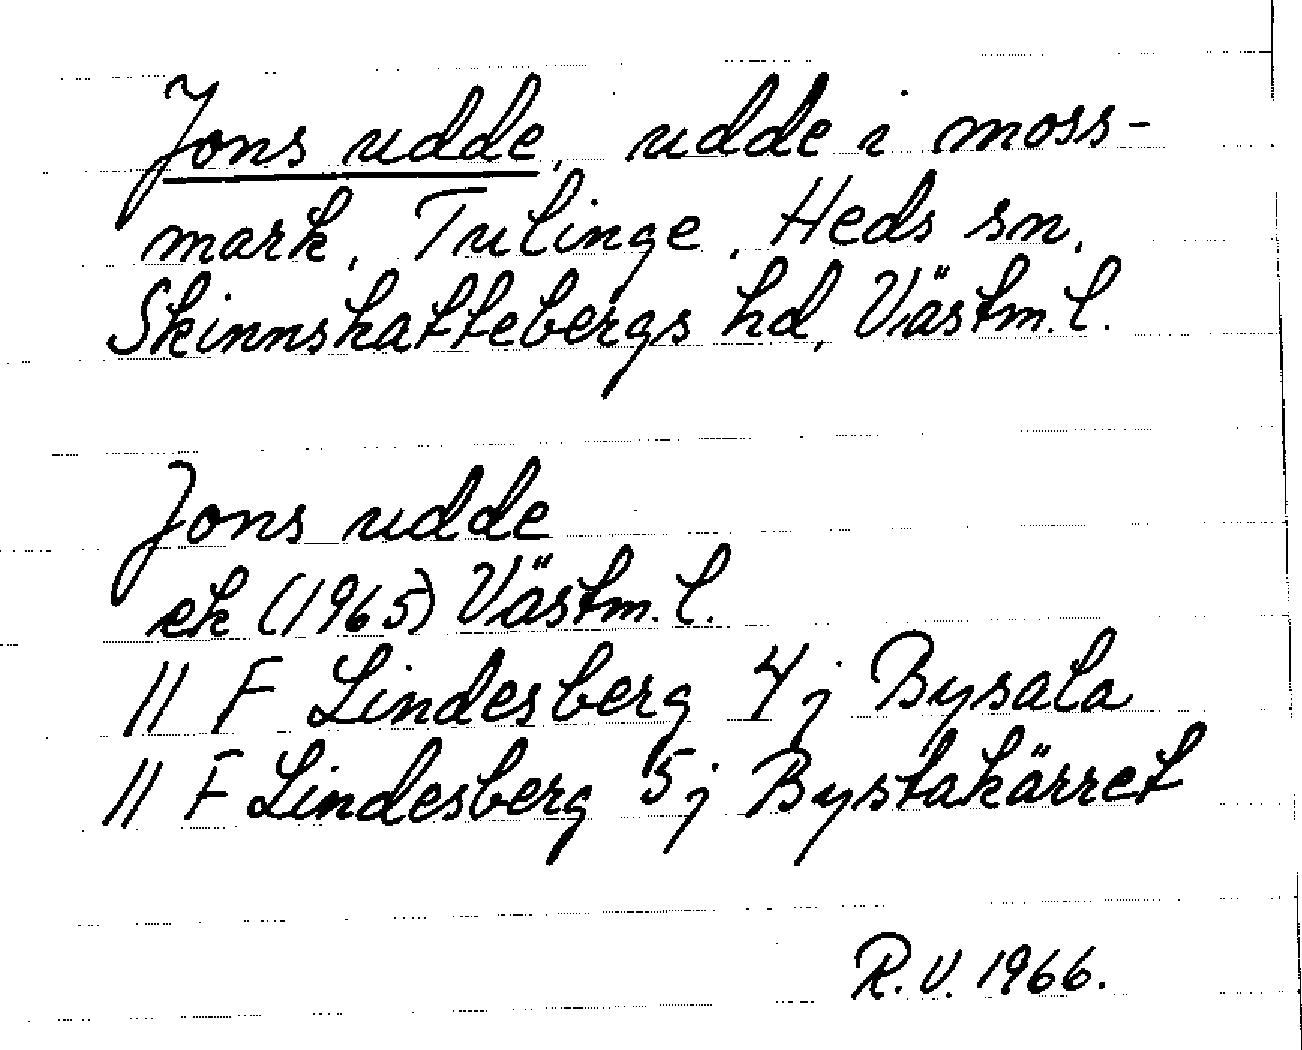 Jons udde, udde i moss-
mark, Tulinge, Heds sn,
Skinnskattebergs hd, Västm. l.
Jons udde
ek (1965) Västm. l.
11 F Lindesberg 4j Bysala
11 F Lindesberg 5j Bystakärret
R.V. 1966.